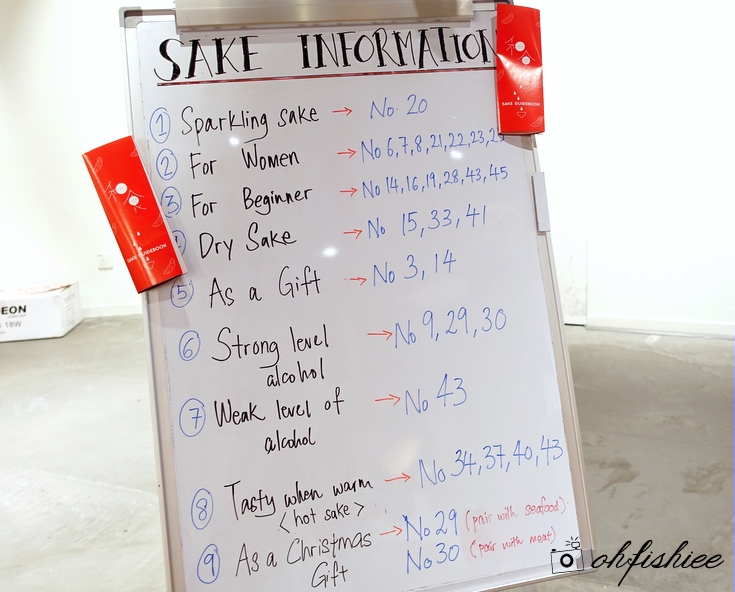 SAKE INFORMATION
① Sparkling sake → No. 20
② For Women → No 6,7,8,21,22,23,25
③ For Beginner → No 14,16,19,28,43,45
Dry Sake → No 15,33,41
⑤ As a Gift → No 3,14
⑥ Strong level → No 9,29,30
alcohol
⑦ Weak level of → No 43
alcohol
⑧ Tasty when warm → No 34,37,40,43
<hot sake>
⑨ As a Christmas → No 29 (pair with seafood)
Gift No 30 (pair with meat)
SAKE GUIDEBOOK
SAKE GUIDEBOOK
EON
18W
ohfishiee